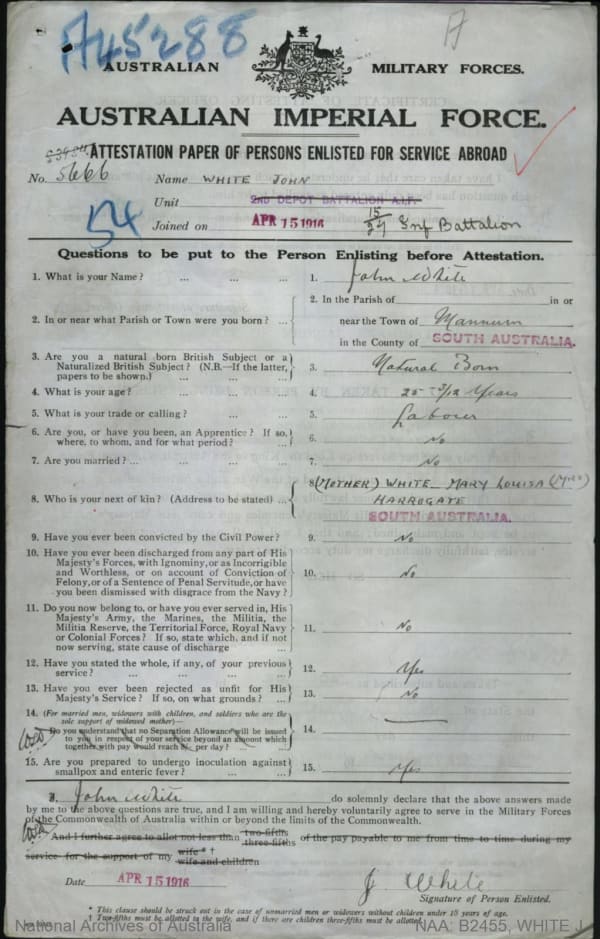 A45288
AUSTRALIAN MILITARY FORCES.
AUSTRALIAN IMPERIAL FORCE.
ATTESTATION PAPER OF PERSONS ENLISTED FOR SERVICE ABROAD
No. 5666 Name WHITE JOHN
54
Unit 2ND DEPOT BATTALION A.I.F.
Joined on APR 15 1916 15/27 Inf Battalion
Questions to be put to the Person Enlisting before Attestation.
1. What is your Name? ... ... ... 1. John White
2. In or near what Parish or Town were you born? ... 2. In the Parish of in or
near the Town of Mannum
in the County of SOUTH AUSTRALIA.
3. Are you a natural born British Subject or a
Naturalized British Subject? (N.B.—If the latter,
papers to be shown.) ... ... 3. Natural Born
4. What is your age? ... ... ... 4. 25 3/12 Years
5. What is your trade or calling? ... ... 5. Labourer
6. Are you, or have you been, an Apprentice? If so,
where, to whom, and for what period? ... 6. No
7. Are you married? ... ... ... ... 7. No
8. Who is your next of kin? (Address to be stated) ... 8 (MOTHER) WHITE MARY LOUISA (MRS)
HARROGATE
SOUTH AUSTRALIA.
9. Have you ever been convicted by the Civil Power? 9. No
10. Have you ever been discharged from any part of His
Majesty's Forces, with Ignominy, or as Incorrigible
and Worthless, or on account of Conviction of
Felony, or of a Sentence of Penal Servitude, or have
you been dismissed with disgrace from the Navy? 10. No
11. Do you now belong to, or have you ever served in, His
Majesty's Army, the Marines, the Militia, the
Militia Reserve, the Territorial Force, Royal Navy
or Colonial Forces? If so, state which, and if not
now serving, state cause of discharge ... 11. No
12. Have you stated the whole, if any, of your previous
service? ... ... ... ... 12. Yes
13. Have you ever been rejected as unfit for His
Majesty's Service? If so, on what grounds? ... 13. No
14. (For married men, widowers with children, and soldiers who are the
sole support of widowed mother—
Do you understand that no Separation Allowance will be issued
to you in respect of your service beyond an amount which
together with pay would reach 8/- per day? ... 14.
15. Are you prepared to undergo inoculation against
smallpox and enteric fever? ... ... 15. Yes
I, John White do solemnly declare that the above answers made
by me to the above questions are true, and I am willing and hereby voluntarily agree to serve in the Military Forces
of the Commonwealth of Australia within or beyond the limits of the Commonwealth.
And I further agree to allot not less than two-fifths three-fifths of the pay payable to me from time to time during my
service for the support of my wife * † wife and children
Date APR 15 1916 J White
Signature of Person Enlisted.
* This clause should be struck out in the case of unmarried men or widowers without children under 18 years of age.
† Two-fifths must be allotted to the wife, and if there are children three-fifths must be allotted.
National Archives of Australia NAA: B2455, WHITE J